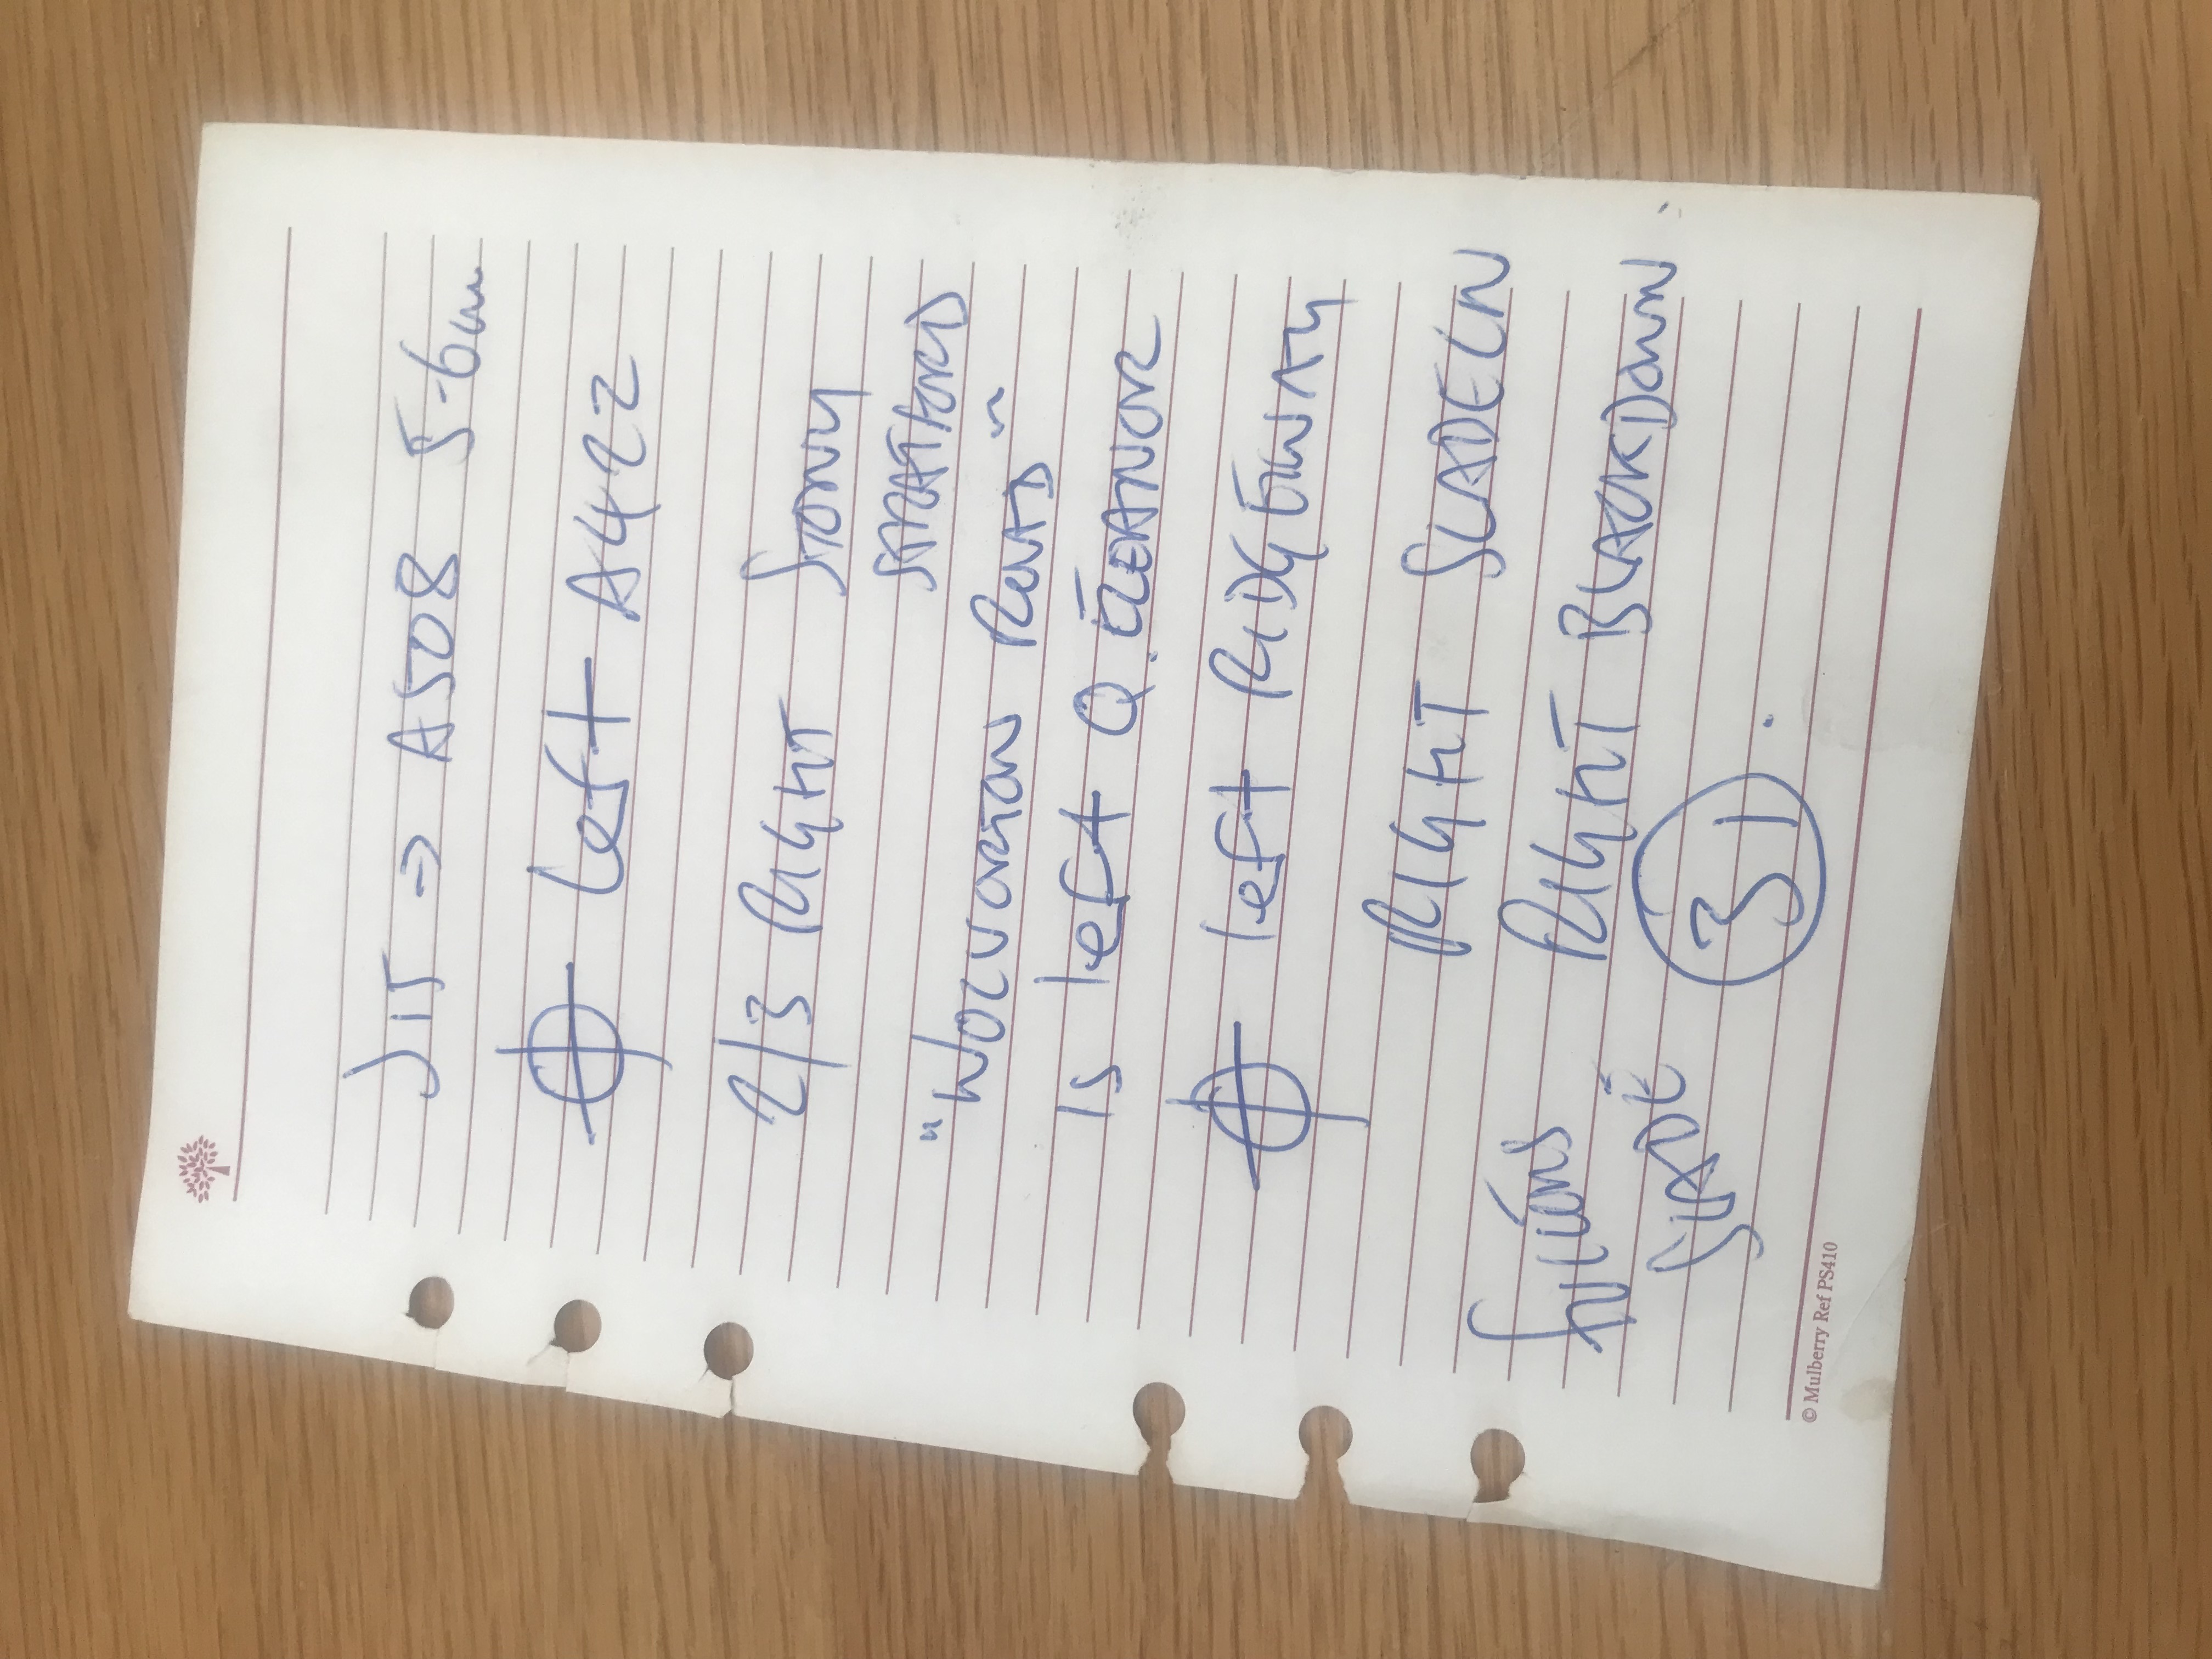 J15 → A508 5-6m
left A422
2/3 RIGHT STONY
STRATFORD
"WOLVERTON ROAD"
IS left Q. ELEANOR
left RIDGEWAY
RIGHT SLADE LN
FULLERS RIGHT BLACKDOWN.
SLADE
31.
© Mulberry Ref PS410